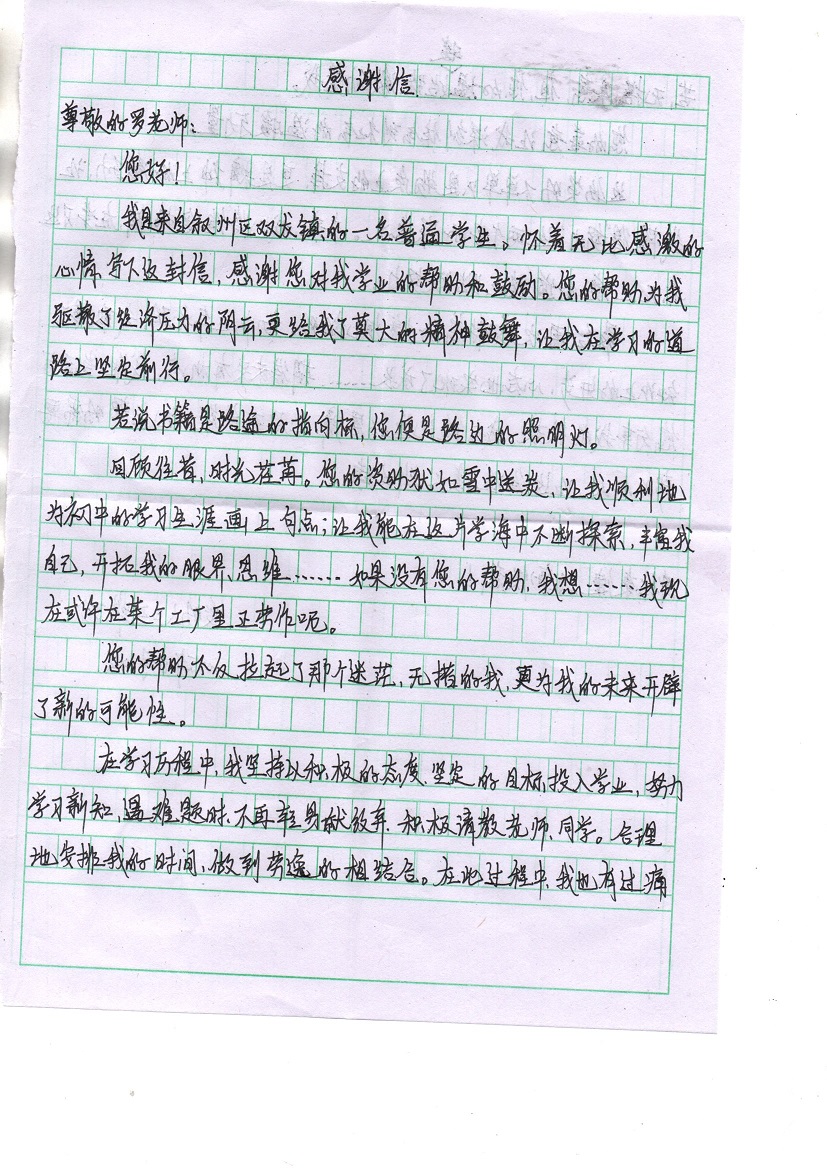 感谢信
尊敬的罗老师：
您好！
我是来自叙州区双龙镇的一名普通学生。怀着无比感激的
心情写下这封信，感谢您对我学业的帮助和鼓励。您的帮助为我
驱散了经济压力的阴云，更给我了莫大的精神鼓舞，让我在学习的道
路上坚定前行。
若说书籍是路途的指向标，您便是路边的照明灯。
回顾往昔，时光荏苒。您的资助犹如雪中送炭，让我顺利地
为初中的学习生涯画上句点；让我能在这片学海中不断探索，丰富我
自己，开拓我的眼界、思维……如果没有您的帮助，我想……我现
在或许在某个工厂里正劳作呢。
您的帮助不仅拉起了那个迷茫、无措的我，更为我的未来开辟
了新的可能性。
在学习历程中，我坚持以积极的态度、坚定的目标投入学业，努力
学习新知，遇难题时、不再轻易献放弃，积极请教老师、同学。合理
地安排我的时间，做到劳逸的相结合。在此过程中，我也有过痛